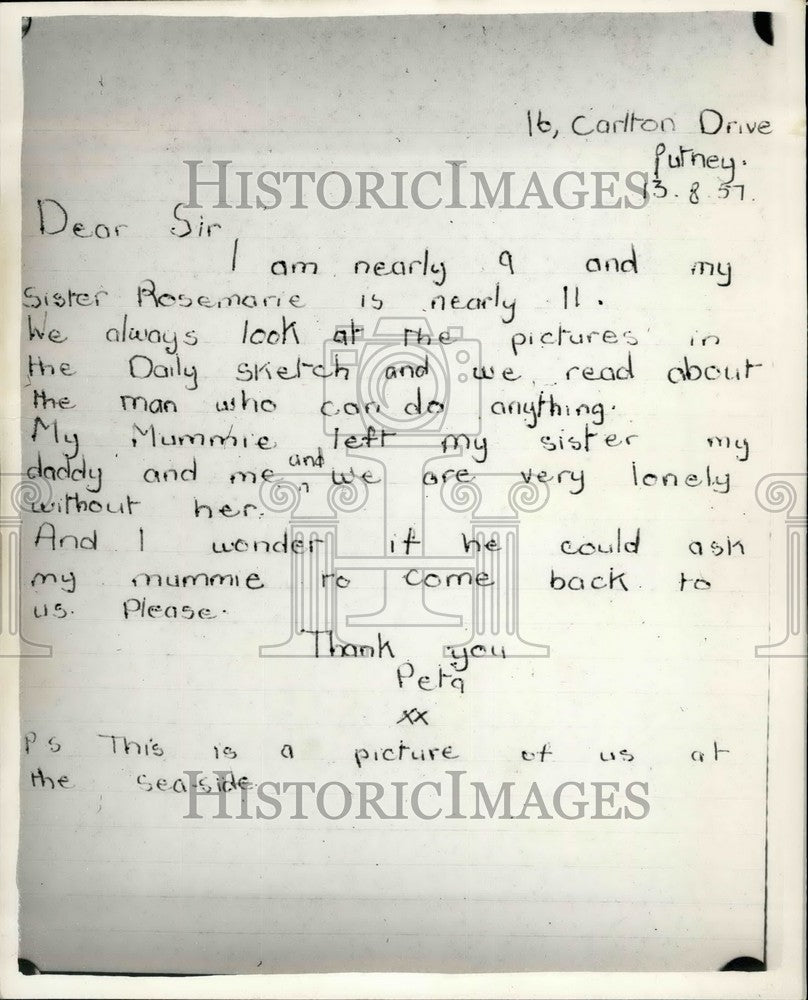 16, Carlton Drive
Putney.
13.8.57.
HISTORICIMAGES
Dear Sir
I am nearly 9 and my
Sister Rosemarie is nearly 11.
We always look at the pictures in
the Daily Sketch and we read about
the man who can do anything.
My Mummie left my sister my
daddy and me and we are very lonely
without her.
And I wonder if he could ask
my mummie to come back to
us. Please.
Thank you
Peta
xx
PS This is a picture of us at
the sea-side.
HISTORICIMAGES